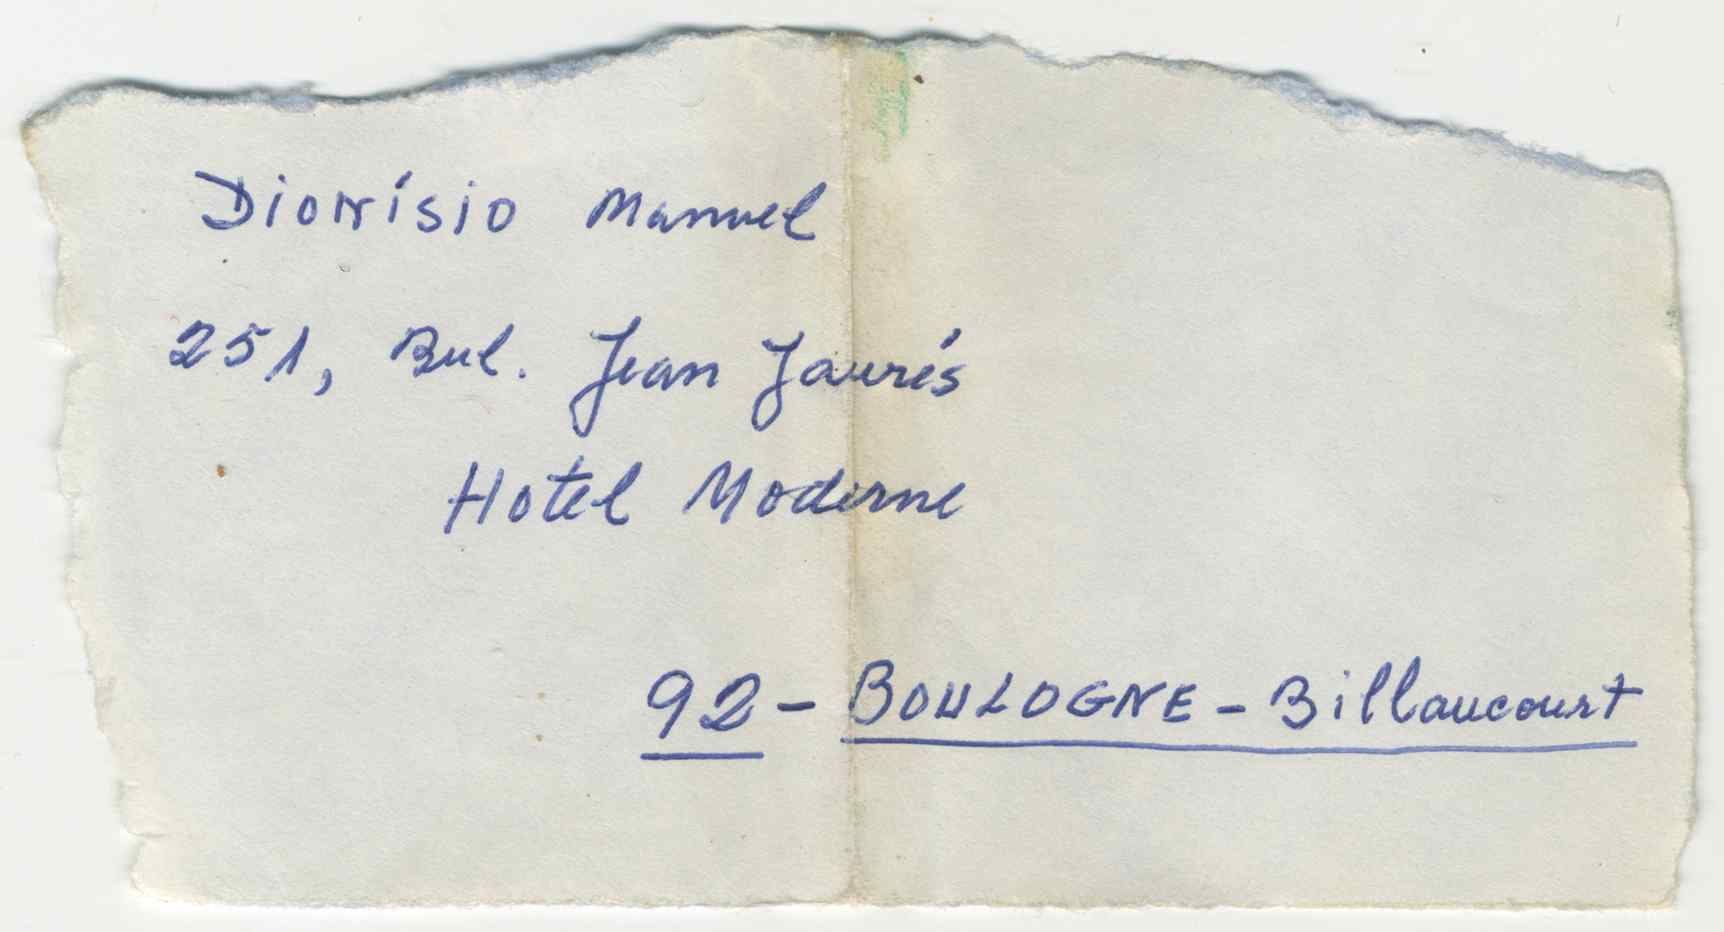 Dionísio Manuel
251, Bul. Jean Jaurés
Hotel Moderne
92 - BOULOGNE - Billaucourt